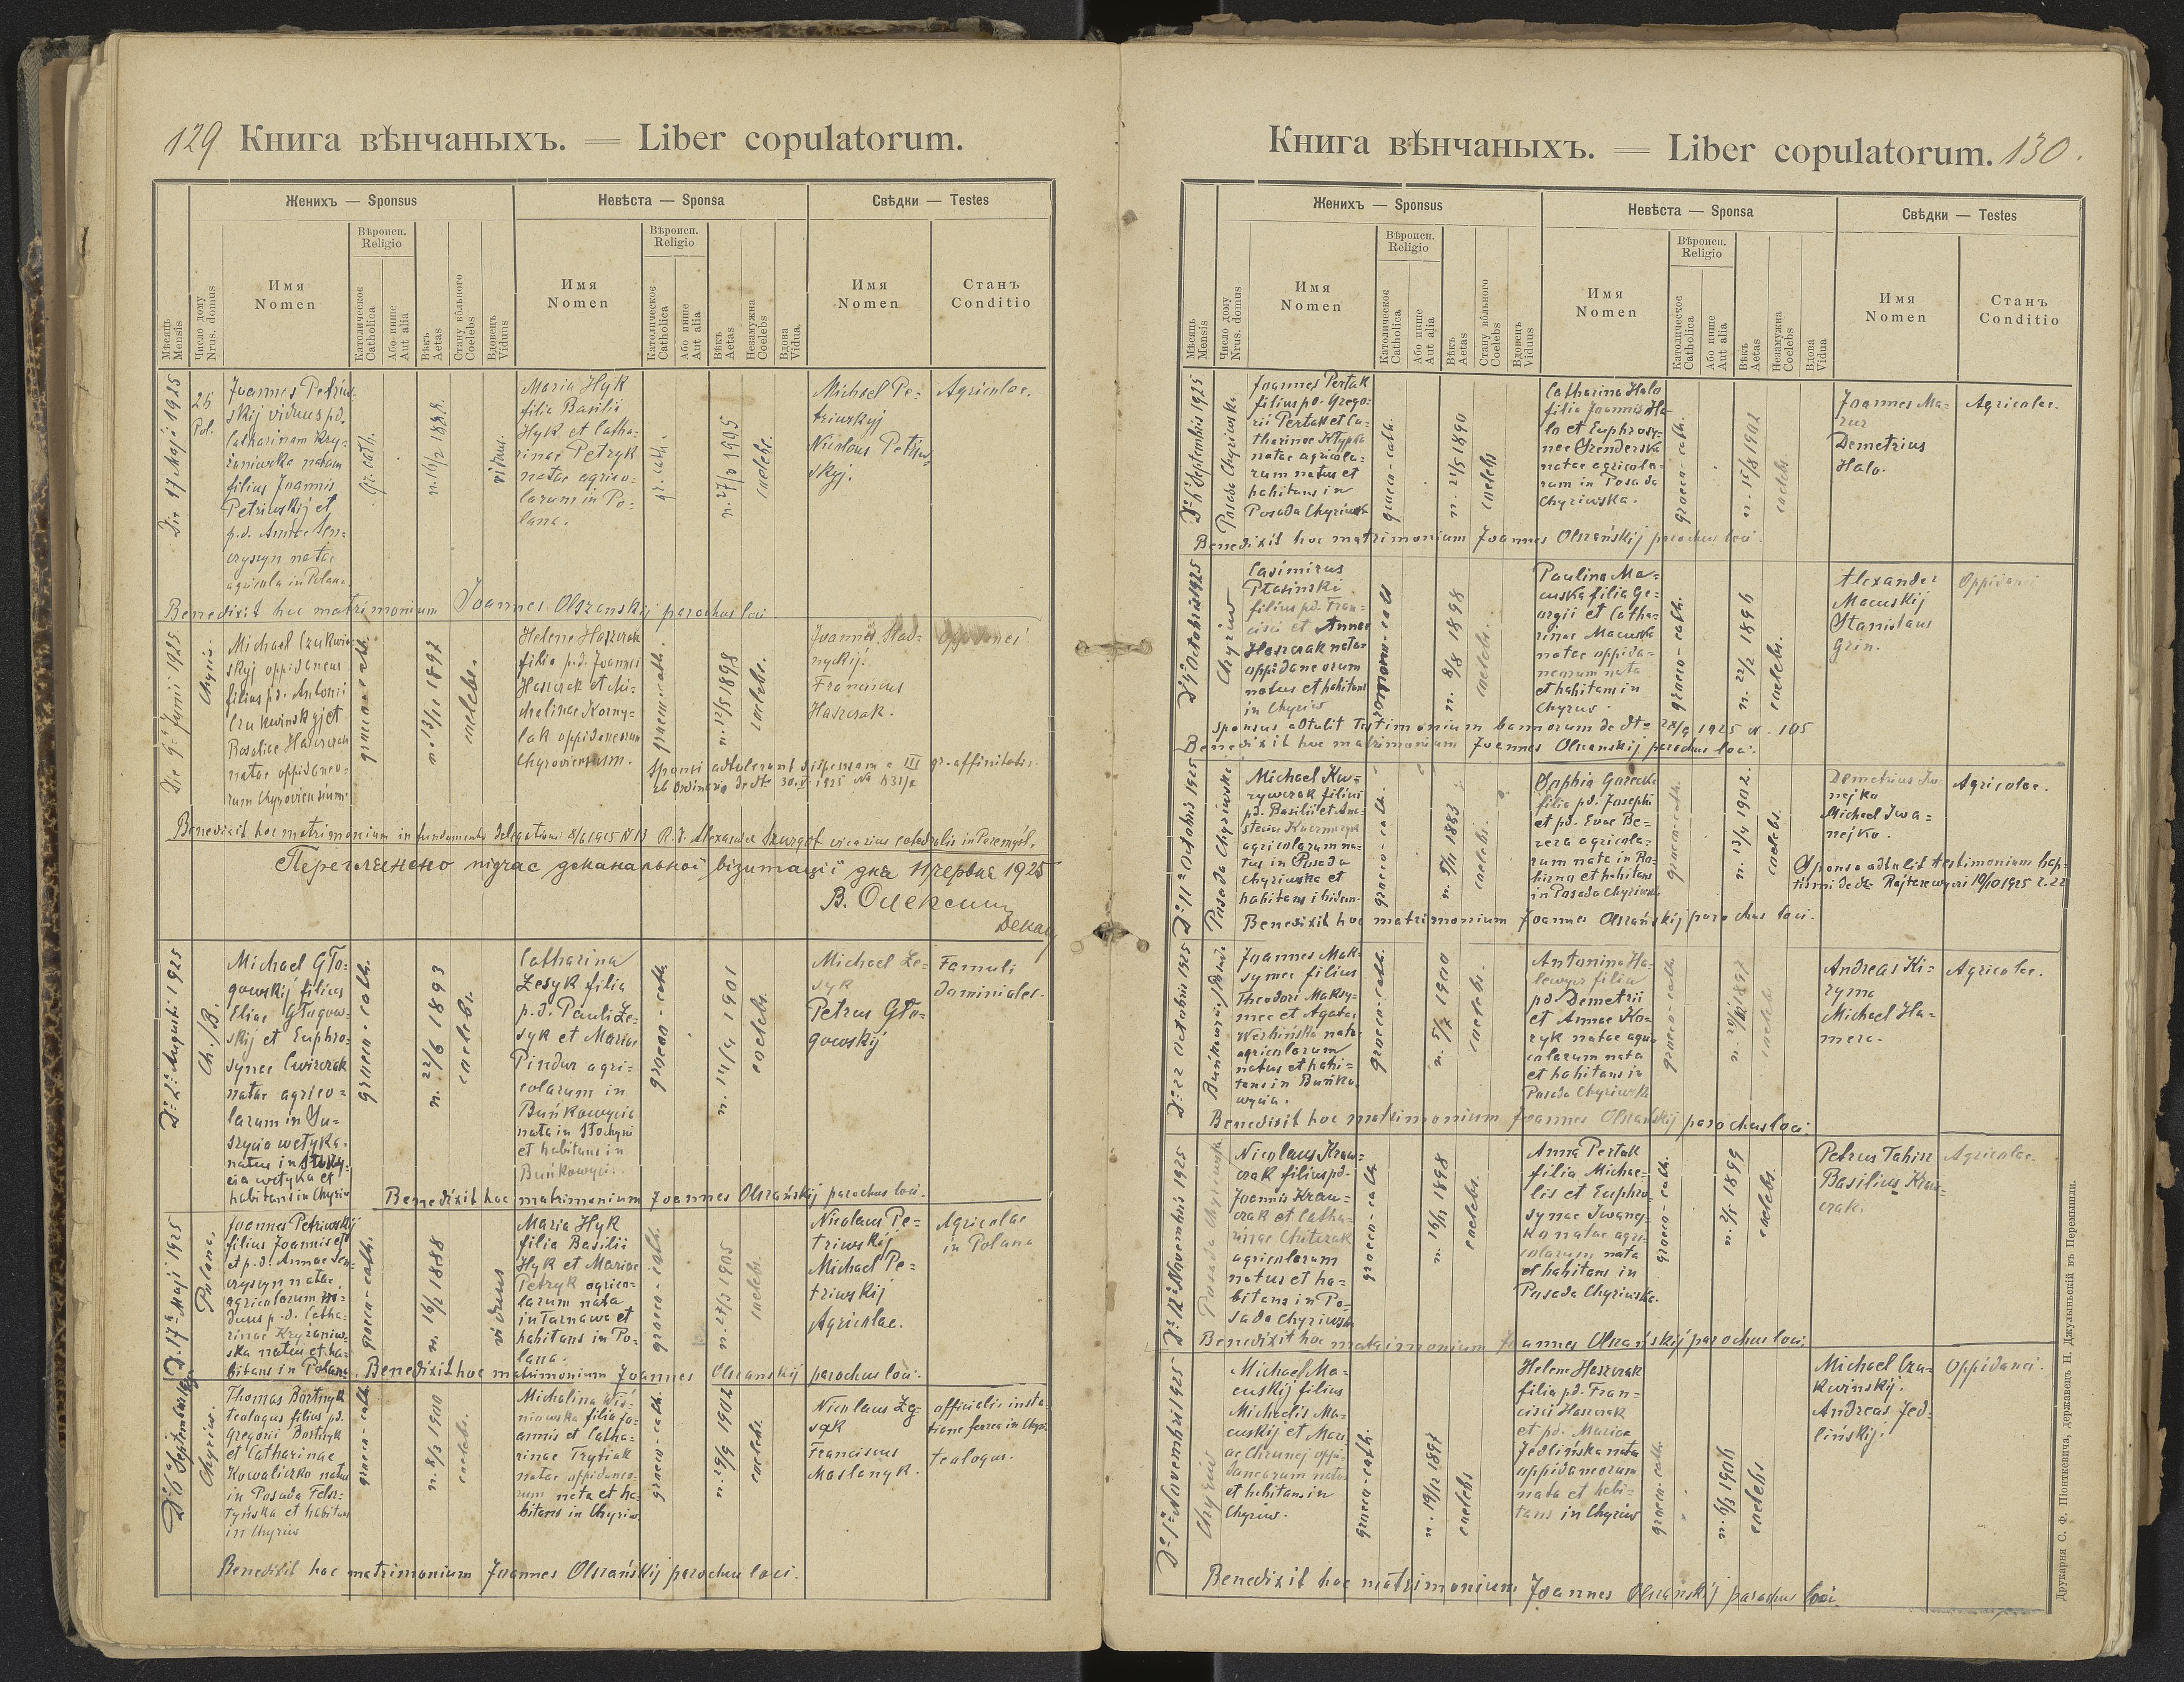 129 Книга вѣнчаныхъ. = Liber copulatorum.
Женихъ — Sponsus
Невѣста — Sponsa
Свѣдки — Testes
Мѣсяць Mensis
Число дому Nrus. domus
Имя Nomen
Вѣроисп. Religio
Католическое Catholica
Або инше Aut alia
Вѣкъ Aetas
Стану вôльного Coelebs
Вдовецъ Viduus
Имя Nomen
Вѣроисп. Religio
Католическое Catholica
Або инше Aut alia
Вѣкъ Aetas
Незамужна Coelebs
Вдова Vidua.
Имя Nomen
Станъ Conditio
Die 17 Maji 1925
Pol.
Joannes Petriw-
skij viduus p.d.
Catharinam Kry-
żaniwska natam
filius Joannis
Petriwskij et
p.d. Annae Sen-
czyszyn natae
agricola in Polana.
gr. cath.
n. 16/2 1888.
viduus.
Maria Hyk
filia Basilii
Hyk et Catha-
rinae Petryk
natae agrico-
larum in Po-
lana.
gr. cath.
n. 27/3 1905
coelebs.
Michael Pe-
triwskyj
Nicolaus Petriw-
skyj.
Agricolae.
Benedixit hoc matrimonium Joannes Olszanskij parochus loci
Die 9 Junii 1925
Chyriw.
Michael Czukwin-
skyj oppidaneus
filius p.d. Antonii
Czukwinskyj et
Rosaliae Haszczak
natae oppidaneo-
rum Chyroviensium.
graeco-cath.
n. 13/11 1897
coelebs.
Helena Haszczak
filia p.d. Joannis
Haszczak et Mi-
chalinae Korny-
lak oppidaneorum
Chyroviensium.
graeco-cath.
n. 12/5 1898
coelebs.
Joannes Slad-
nyckij.
Franciscus
Haszczak.
Sponsi adtulerunt dispensam a III gr. affinitatis
ab Ordinario
Benedixit hoc matrimonium in fundamento delegationis 8/6 1925 N 13 R.d. Alexander vicarius catedralis in Peremyśl.
Переглянено підчас деканальної візитації дня 11 червня 1925
В. Олексин
Декан
D. 2. Augusti 1925
Ch./B.
Michael Gło-
gowskij filius
Eliae Głogow-
skij et Euphro-
synae Cwirczak
natae agrico-
larum in Su-
szycia wełyka.
natus in Suszy-
cia wełyka et
habitans in Chyriw
graeco-cath.
n. 22/6 1893
coelebs.
Catharina
Łesyk filia
p.d. Pauli Łe-
syk et Mariae
Pindur agri-
colarum in
Buńkowycia
nata in Słochyni
et habitans in
Buńkowyci.
graeco-cath.
n. 14/4 1901
coelebs.
Michael Łe-
syk
Petrus Gło-
gowskij
Famuli
dominiales.
Benedixit hoc matrimonium Joannes Olszańskij parochus loci.
D. 17 Maji 1925
Polana.
Joannes Petriwskij
filius Joannis et
et p.d. Annae Sen-
czyszyn natae
agricolarum vi-
duus p.d. Catha-
rinae Kryżaniw-
ska natus et ha-
bitans in Polana.
graeco-cath.
n. 16/2 1888
viduus
Maria Hyk
filia Basilii
Hyk et Mariae
Petryk agrico-
larum nata
in Tarnawa et
habitans in Po-
lana.
graeco-cath.
n. 27/3 1905
coelebs.
Nicolaus Pe-
triwskij
Michael Pe-
triwskij
Agricolae.
Agricolae
in Polana
Benedixit hoc matrimonium Joannes Olszanskij parochus loci.
D. 6 Septembris 1925
Chyriw.
Thomas Bortnyk
tealogus filius p.d.
Gregorii Bortnyk
et Catharinae
Kowaliczko natus
in Posada Felsz-
tyńska et habitans
in Chyriw
graeco-cath.
n. 8/3 1900
coelebs.
Michalina Wiś-
niowska filia Jo-
annis et Catha-
rinae Trytiak
natae oppidaneo-
rum nata et ha-
bitans in Chyriw.
graeco-cath.
n. 29/9 1902
coelebs.
Nicolaus Zą-
sąk
Franciscus
Maslanyk.
officialis in sta-
tione ferrea in Chyriw
tealogus.
Benedixit hoc matrimonium Joannes Olszańskij parochus loci.
Книга вѣнчаныхъ. = Liber copulatorum. 130.
Женихъ — Sponsus
Невѣста — Sponsa
Свѣдки — Testes
Мѣсяць Mensis
Число дому Nrus. domus
Имя Nomen
Вѣроисп. Religio
Католическое Catholica
Або инше Aut alia
Вѣкъ Aetas
Стану вôльного Coelebs
Вдовецъ Viduus
Имя Nomen
Вѣроисп. Religio
Католическое Catholica
Або инше Aut alia
Вѣкъ Aetas
Незамужна Coelebs
Вдова Vidua
Имя Nomen
Станъ Conditio
D. 6 Septembris 1925
Posada Chyriwska
Joannes Pertak
filius p.d. Grego-
rii Pertak et Ca-
tharinae Kłypka
natae agricola-
rum natus et
habitans in
Posada Chyriwska
graeco-cath.
n. 21/5 1890
coelebs
Catharina Halo
filia Joannis Ha-
lo et Euphrosy-
nae Grenderska
natae agricola-
rum in Posada
Chyriwska.
graeco-cath.
n. 15/8 1902
coelebs.
Joannes Ma-
zur
Demetrius
Halo.
Agricolae.
Benedixit hoc matrimonium Joannes Olszańskij parochus loci.
D. 4 Octobris 1925
Chyriw
Casimirus
Ptasinski
filius p.d. Fran-
cisci et Annae
Haszczak natae
oppidaneorum
natus et habitans
in Chyriw
romano-cath
n. 8/8 1898
coelebs.
Paulina Ma-
cuska filia Ge-
orgii et Catha-
rinae Macuska
natae oppida-
neorum nata
et habitans in
Chyriw.
graeco-cath.
n. 22/2 1896
coelebs.
Alexander
Macuskij
Stanislaus
Grin.
Oppidanei
Sponsus adtulit testimonium bannorum de dto 28/9 1925 N. 105
Benedixit hoc matrimonium Joannes Olszanskij parochus loci.
D. 11 Octobris 1925
Posada Chyriwska
Michael Kw-
rywczak filius
p.d. Basilii et Ana-
stasiae Kaczmaryk
agricolarum na-
tus in Posada
Chyriwska et
habitans ibidem.
graeco-cath.
n. 5/11 1883
coelebs.
Sophia Gorecka
filia p.d. Josephi
et p.d. Evae Be-
reza agricola-
rum nata in Ro-
hizno et habitans
in Posada Chyriwsk.
graeco-cath.
n. 13/4 1902.
coelebs.
Demetrius Iwa-
nejko
Michael Iwa-
nejko.
Agricolae.
Sponsa adtulit testimonium bap-
tismi de dto Rajtarowyci 10/10 1925 L. 22
Benedixit hoc matrimonium Joannes Olszańskij parochus loci.
D. 22 Octobris 1925
Joannes Mak-
symec filius
Theodori Maksy-
mec et Agatae
Werbińska natae
agricolarum
natus et habi-
tans in Buńko-
wycia.
graeco-cath.
n. 5/7 1900
coelebs.
Antonina Ha-
lewycz filia
p.d. Demetrii
et Annae Ko-
ryk natae agri-
colarum nata
et habitans in
Posada Chyriwska
graeco-cath
coelebs
Andreas Ki-
ryma
Michael Ha-
mera.
Agricolae.
Benedixit hoc matrimonium Joannes Olszańskij parochus loci.
D. 12 Novembris 1925
Posada Chyriwska
Nicolaus Kraw-
czak filius p.d.
Joannis Kraw-
czak et Catha-
rinae Chitczak
agricolarum
natus et ha-
bitans in Po-
sada Chyriwska
graeco-cath
n. 16/11 1898
coelebs.
Anna Pertak
filia Michae-
lis et Euphro-
synae Iwanej-
ko natae agri-
colarum nata
et habitans in
Posada Chyriwska.
graeco-cath.
n. 2/5 1899
coelebs.
Petrus Tahin
Basilius Kraw-
czak.
Agricolae.
Benedixit hoc matrimonium Joannes Olszańskij parochus loci.
Novembris 1925
Chyriw
Michael Ma-
cuskij filius
Michaelis Ma-
cuskij et Mari-
ae Chrunej oppi-
daneorum natus
et habitans in
Chyriw.
graeco-cath.
n. 19/12 1897
coelebs
Helena Haszczak
filia p.d. Fran-
cisci Haszczak
et p.d. Mariae
Jedlińska nata
oppidaneorum
nata et habi-
tans in Chyriw
graeco-cath.
n. 6/3 1906
coelebs
Michael Czu-
kwinskij.
Andreas Jed-
linskij.
Oppidanei.
Benedixit hoc matrimonium Joannes Olszanskij parochus loci.
Друкарня С. Ф. Піонткевича, державецъ Н. Джулыньскій въ Перемышли.